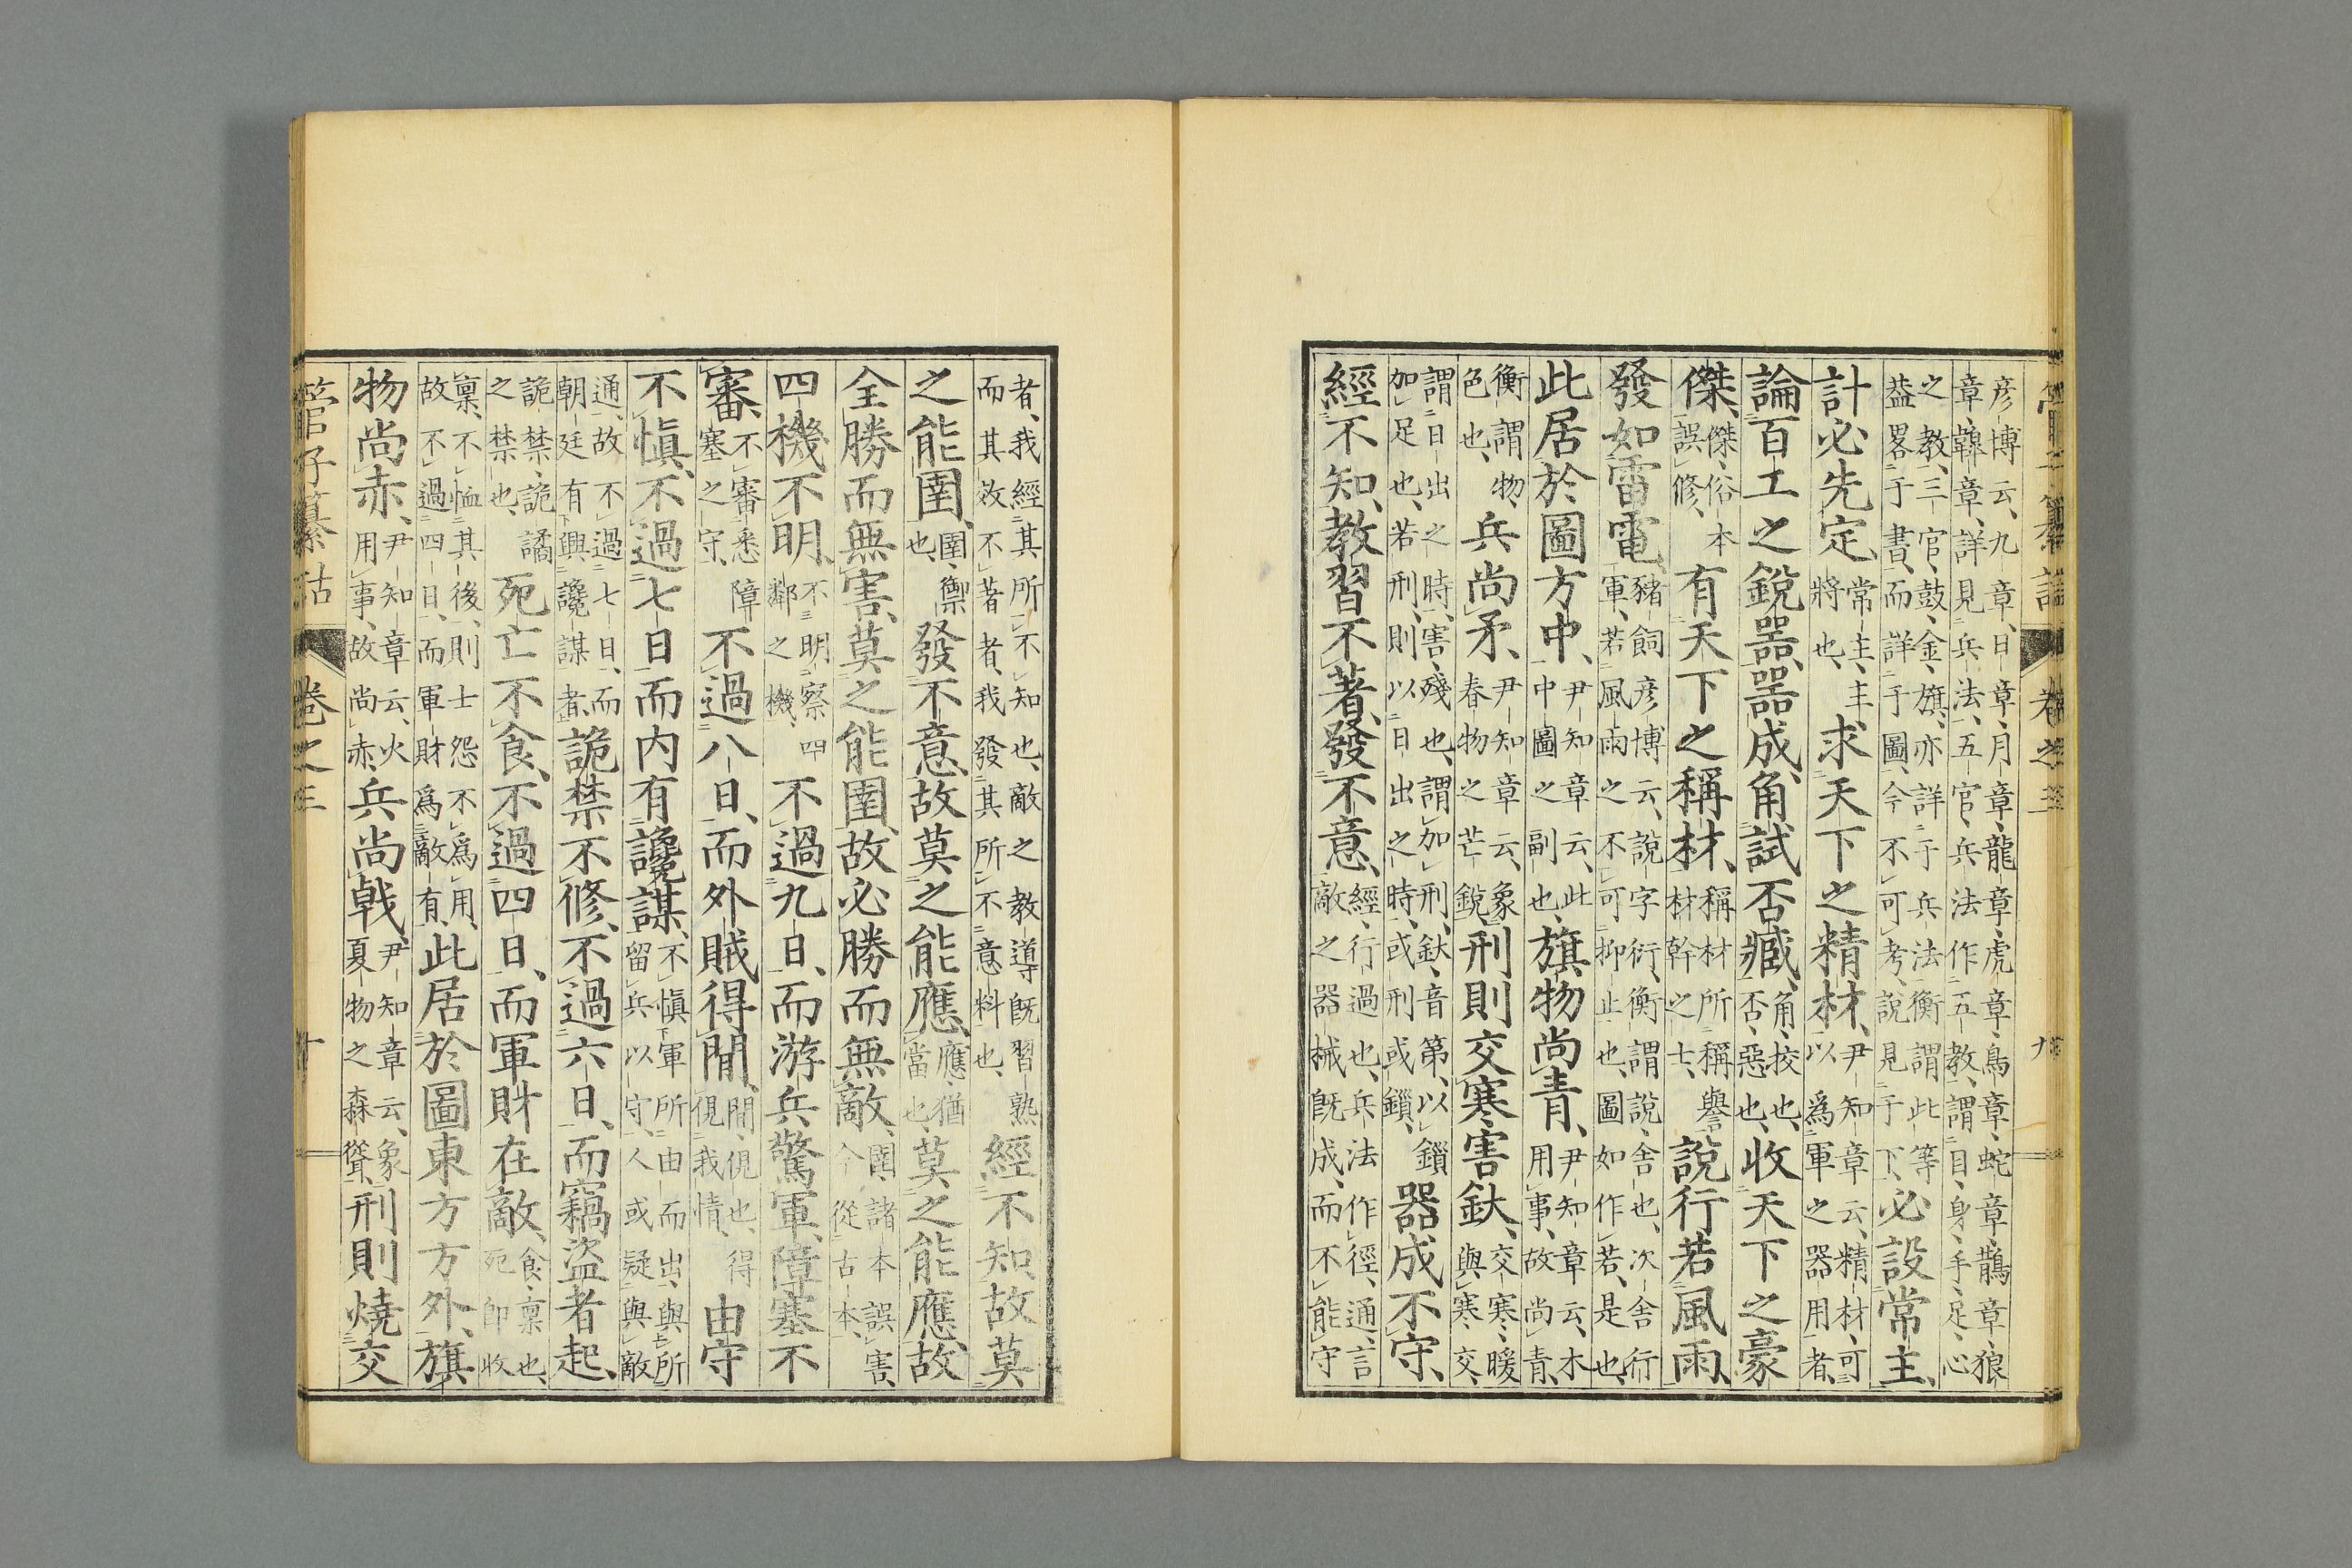 管子纂詁 卷之三 九
彥博云、九章、日章、月章、龍章、虎章、鳥章、蛇章、鵲章、狼
章、韓章、詳見兵法、五官、兵法作五教、謂目、身、手、足、心
之教、三官、鼓、金、旗、亦詳于兵法、衡謂此等
葢畧于書、而詳于圖、今不可考、說見于下、必設常主、
計必先定、常主、主將也、求天下之精材、尹知章云、精材、可以爲軍之器用者、
論百工之銳器、器成、角試否臧、角、挍也、否、惡也、收天下之豪
傑、傑、俗本誤修、有天下之稱材、稱材、所稱譽材幹之士、說行若風雨、
發如雷電、豬飼彥博云、說字衍、衡謂說、舍也、次舍行軍、若風雨之不可抑止也、圖如作若、是也、
此居於圖方中、尹知章云、此中圖之副也、旗物尚青、尹知章云、木用事、故尚青、
衡謂物、色也、兵尚矛、尹知章云、象春物之芒銳、刑則交寒害釱、交寒、暖與寒交、
謂日出之時、害、殘也、謂加刑、釱、音第、以鎖
加足也、若刑、則以日出之時、或刑或鎖、器成不守、
經不知、教習不著、發不意、經、行過也、兵法作徑、通、言敵之器械旣成、而不能守
者、我經其所不知也、敵之教導旣習熟
而其效不著者、我發其所不意料也、經不知、故莫
之能圉、圉、禦也、發不意、故莫之能應、應、猶當也、莫之能應、故
全勝而無害、莫之能圉、故必勝而無敵、圉、諸本誤害、今從古本、
四機不明、不明察四鄰之機、不過九日、而游兵驚軍、障塞不
審、不審悉障塞之守、不過八日、而外賊得閒、閒、俔也、得俔我情、由守
不愼、不過七日、而内有讒謀、不愼軍所由而出、與所留兵以守、人或疑與敵
通、故不過七日、而朝廷有興讒謀者、詭禁不修、不過六日、而竊盜者起、
詭禁、詭譎之禁也、死亡不食、不過四日、而軍財在敵、食、稟也、死卽收
稟、不恤其後、則士怨不爲用、
故不過四日、而軍財爲敵有、此居於圖東方方外、旗
物尚赤、尹知章云、火用事、故尚赤、兵尚戟、尹知章云、象夏物之森聳、刑則燒交
管子纂詁 卷之三 十